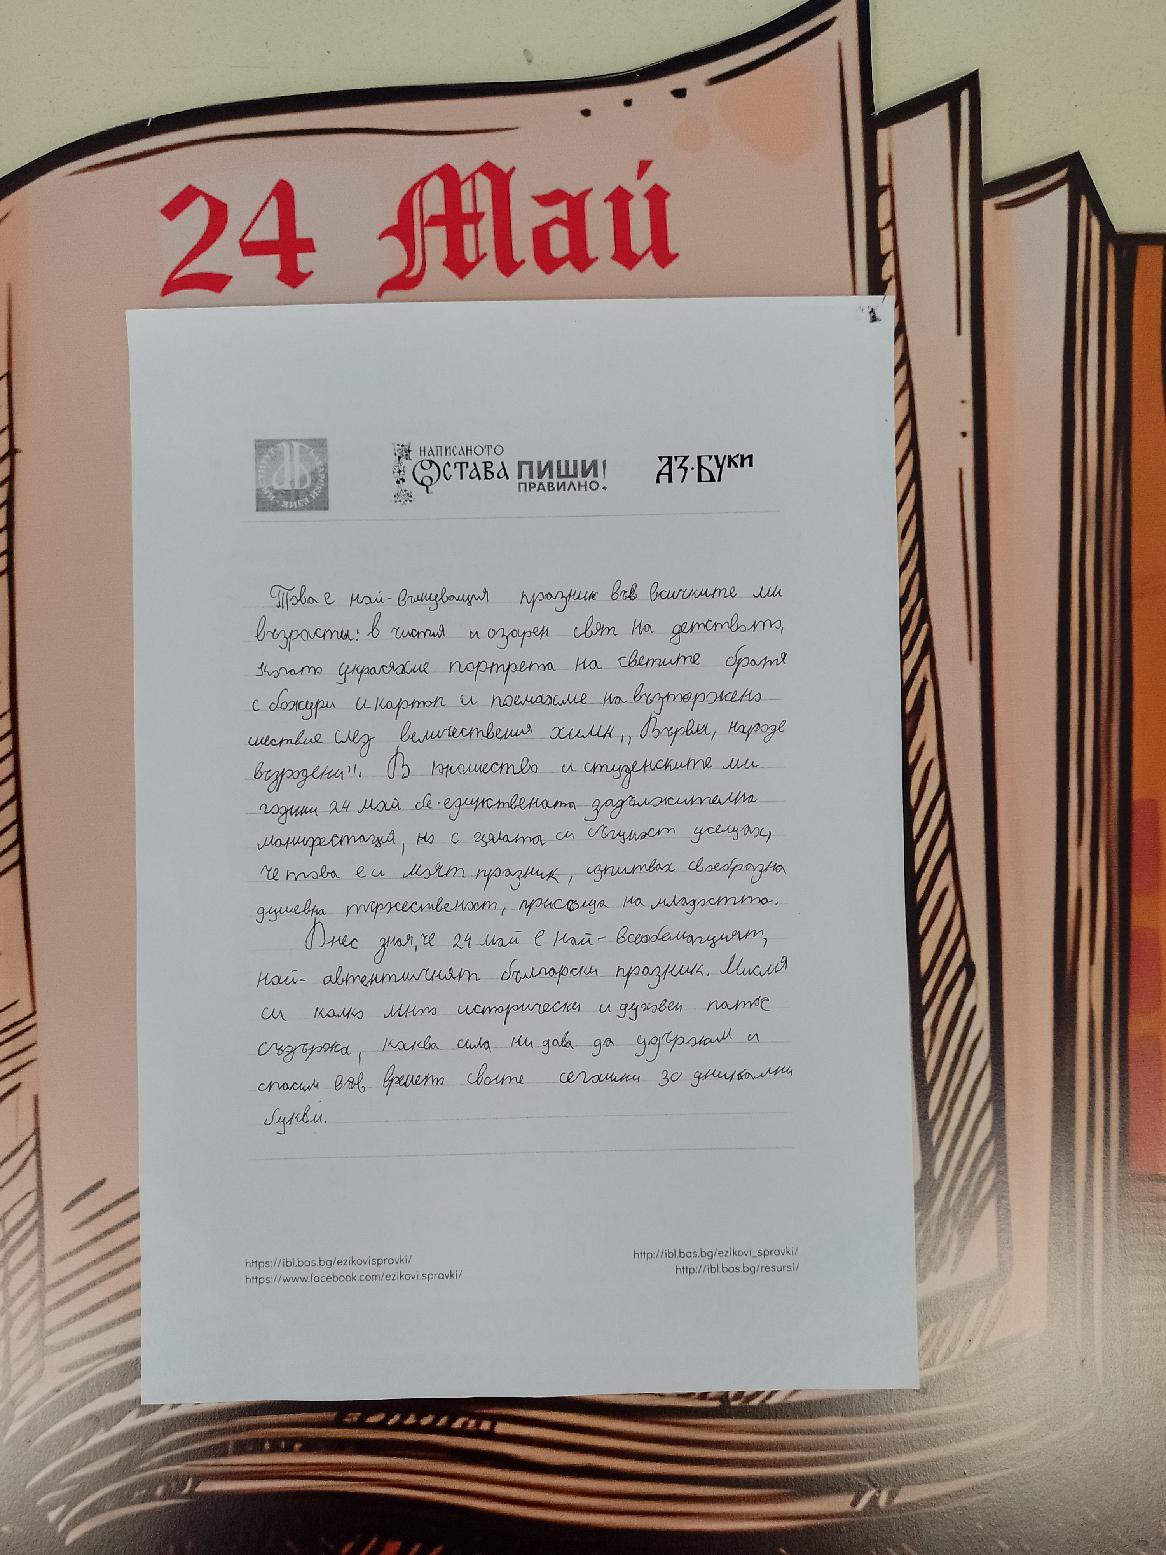 24 Май
НАПИСАНОТО
ОСТАВА
ПИШИ!
ПРАВИЛНО.
АЗ·БУКИ
Това е най-вълнуващия празник във всичките ми
възрасти: в чистия и озарен свят на детството,
когато украсяхме портрета на светите братя
с божури и картон и поемахме на възторжено
шествие след величествения химн „Върви, народе
възродени". В юношество и студенските ми
години 24 май бе единствената задължителна
манифестация, но с цялата си същност усещах,
че това е и моят празник, изпитвах своеобразна
душевна тържественост, присъща на младостта.
Днес зная, че 24 май е най-всеобемащият,
най-автентичният български празник. Мисля
си колко много исторически и духовен патос
съдържа, каква сила ни дава да удържам и
спасим във времето своите сегашни 30 уникални
букви.
https://ibl.bas.bg/ezikovispravki/
https://www.facebook.com/ezikovi.spravki/
http://ibl.bas.bg/ezikovi_spravki/
http://ibl.bas.bg/resursi/